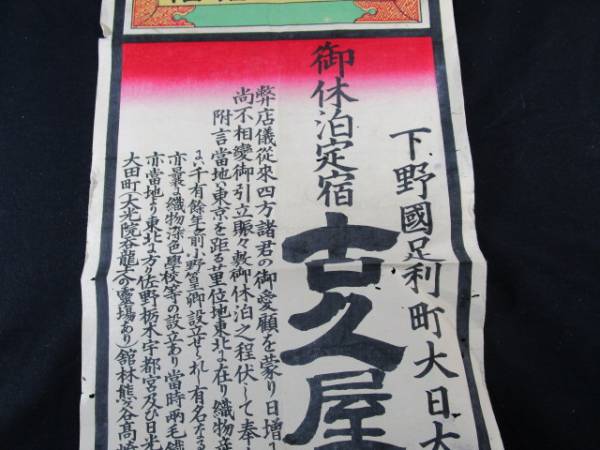 下野國足利町大日大
御休泊定宿
古久屋
弊店儀從來四方諸君の御愛顧を蒙り日增
尚不相變御引立賑々敷御休泊之程伏して奉
附言當地ハ東京を距る 位地東北に在り織物
千有餘年前小野篁卿設立せられし有名なる
亦最も織物染色學校等の設立あり當時兩毛鐵
亦當地より東北に方り佐野栃木宇都宮及び日光
大田町(大光院呑龍 の靈場あり)舘林熊谷高崎